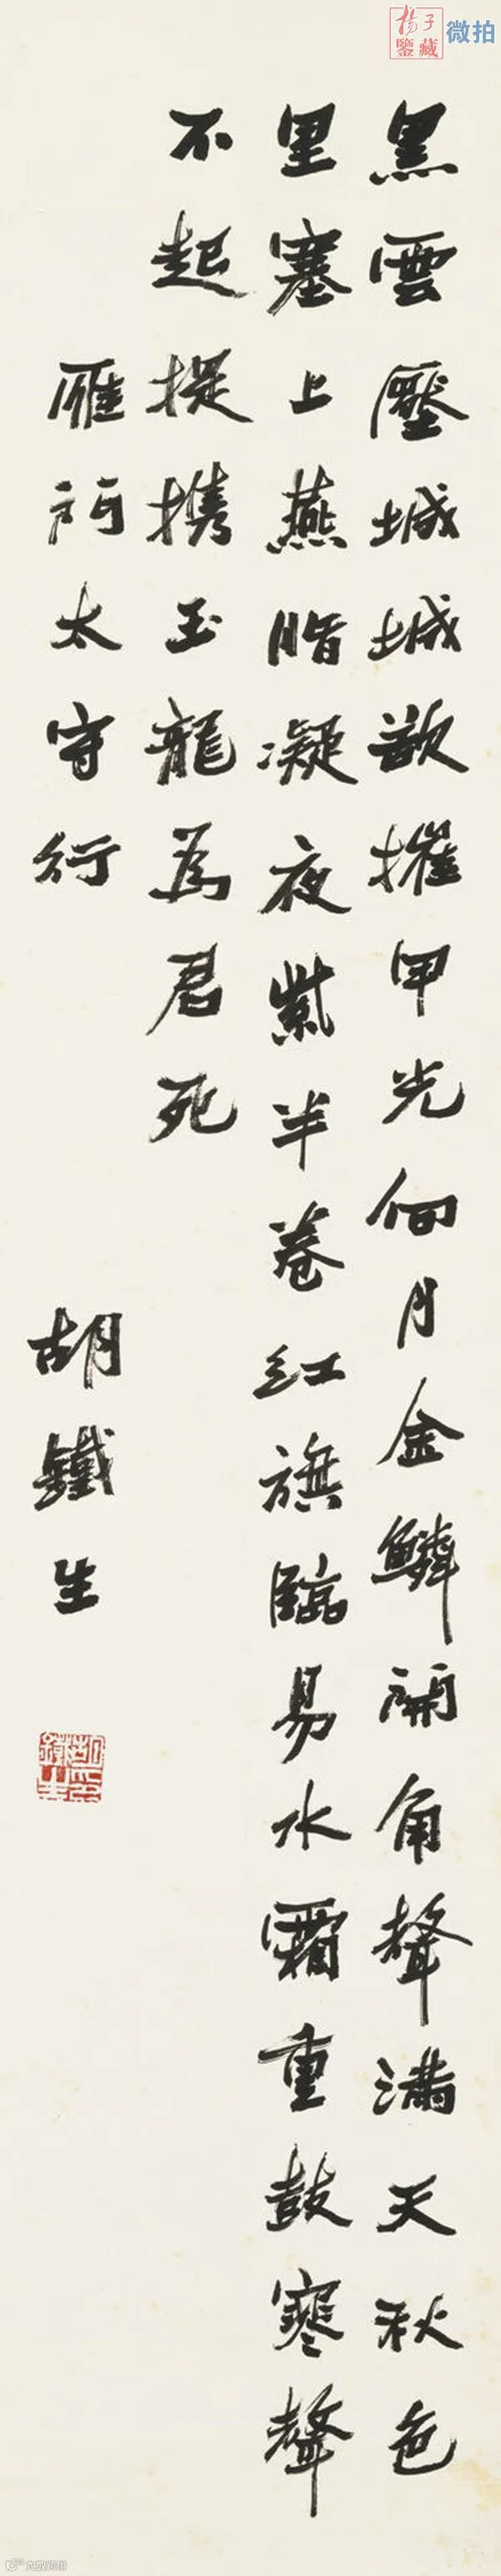 黑雲壓城城欲摧甲光向月金鱗開角聲滿天秋色
里塞上燕脂凝夜紫半卷紅旗臨易水霜重鼓寒聲
不起提携玉龍為君死
雁門太守行
胡鐵生
楊子
鑒藏
微拍